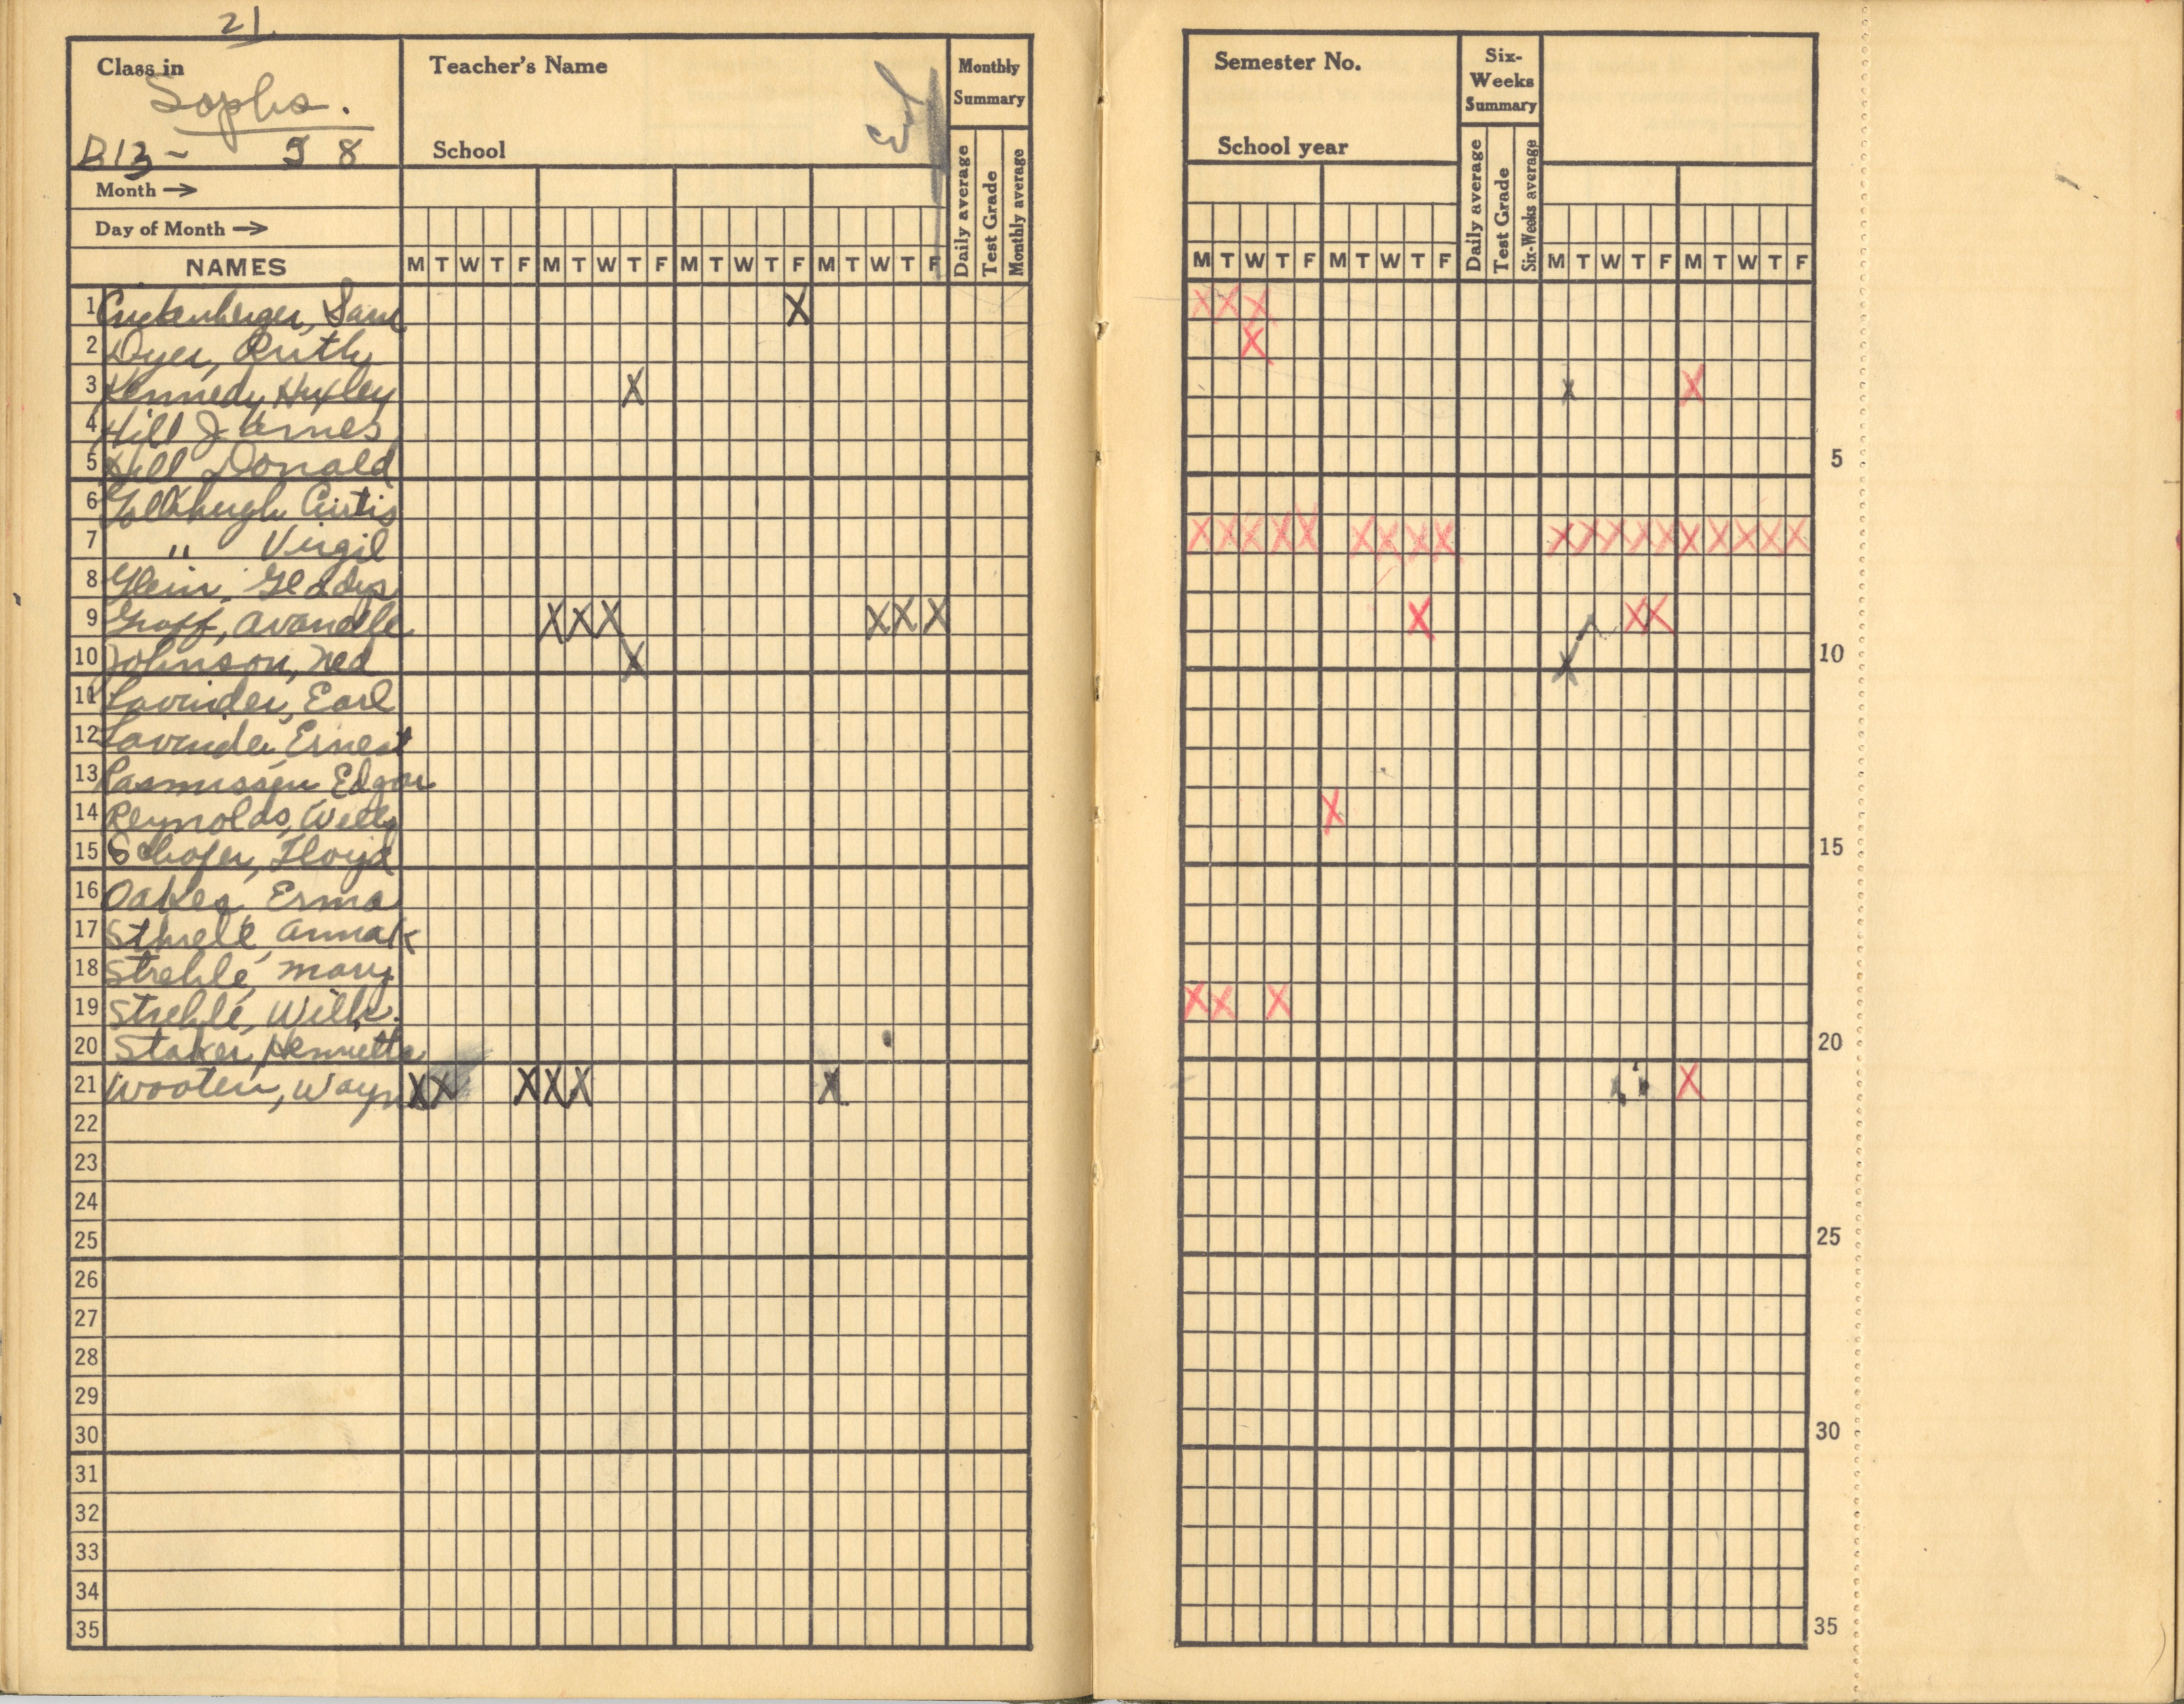 21
Class in
Sophs.
B13 - 98
Teacher's Name
School
Monthly Summary
Month →
Day of Month →
NAMES
M T W T F M T W T F M T W T F M T W T F
Daily average
Test Grade
Monthly average
Semester No.
School year
Six-Weeks Summary
Daily average
Test Grade
Six-Weeks average
M T W T F M T W T F M T W T F M T W T F
1 Sam X X X X
2 Dyer, Ruth X
3 Kennedy Huxley X X X
4 Hill James
5 Hill Donald 5
6 Curtis
7 " Virgil X X X X X X X X X X X X X X X X X X X
8 Gladys
9 Groff, Avanelle X X X X X X X X X
10 Johnson, Ned X X 10
11 Lavender, Earl
12 Lavender Ernest
13 Rasmussen Edgar
14 Reynolds, Willy X
15 Schofer, Floyd 15
16 Oakes, Erma
17 Annak
18 Strehle, Mary
19 Strehle, Willie. X X X
20 Staker, Henrietta 20
21 Wooten, Wayne X X X X X X X
22
23
24
25 25
26
27
28
29
30 30
31
32
33
34
35 35